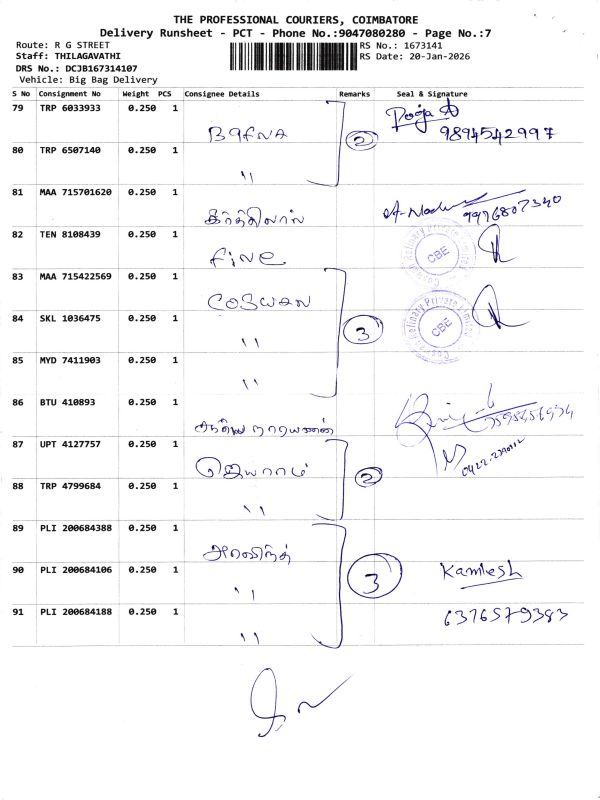 THE PROFESSIONAL COURIERS, COIMBATORE
Delivery Runsheet - PCT - Phone No.:9047080280 - Page No.:7
Route: R G STREET
Staff: THILAGAVATHI
DRS No.: DCJB167314107
Vehicle: Big Bag Delivery
RS No.: 1673141
RS Date: 20-Jan-2026
S No Consignment No Weight PCS Consignee Details Remarks Seal & Signature
79 TRP 6033933 0.250 1 Bafna 2 Pooja
9894542997
80 TRP 6507140 0.250 1 "
81 MAA 715701620 0.250 1 கீர்த்திலால்
9976807340
82 TEN 8108439 0.250 1 fine CBE
83 MAA 715422569 0.250 1 3 CBE
84 SKL 1036475 0.250 1 "
85 MYD 7411903 0.250 1 "
86 BTU 410893 0.250 1 சத்திய நாராயணன்
87 UPT 4127757 0.250 1 ஜெயராம் 2
88 TRP 4799684 0.250 1 "
89 PLI 200684388 0.250 1 அரவிந்த் 3
90 PLI 200684106 0.250 1 " Kamlesh
91 PLI 200684188 0.250 1 " 6376579383